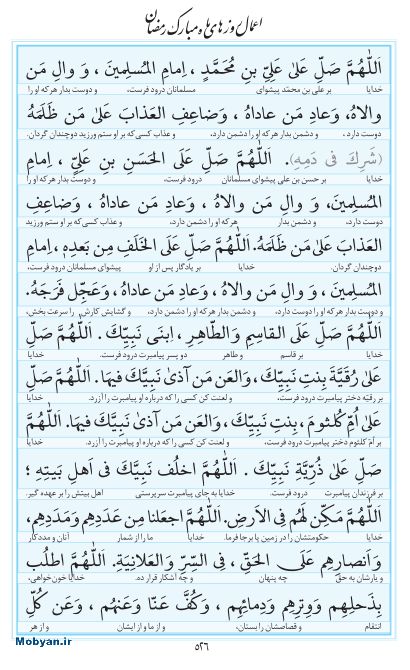 اعمال روزهای ماه مبارک رمضان
اَللّٰهُمَّ صَلِّ عَلىٰ عَلِيِّ بنِ مُحَمَّدٍ ، اِمامِ المُسلِمينَ ، وَ والِ مَن
خدایا بر علی بن محمّد پیشوای مسلمانان درود فرست، و دوست بدار هر که او را
والاهُ، وَعادِ مَن عاداهُ ، وَضاعِفِ العَذابَ عَلىٰ مَن ظَلَمَهُ
دوست دارد، و دشمن بدار هر که او را دشمن دارد، و عذاب کسی که بر او ستم ورزید دوچندان گردان.
(شَرِكَ فى دَمِهِ). اَللّٰهُمَّ صَلِّ عَلَى الحَسَنِ بنِ عَلِيٍّ ، اِمامِ
خدایا بر حسن بن علی پیشوای مسلمانان درود فرست، و دوست بدار هر که او را
المُسلِمينَ، وَ والِ مَن والاهُ ، وَعادِ مَن عاداهُ ، وَضاعِفِ
دوست دارد، و دشمن بدار هر که او را دشمن دارد، و عذاب کسی که بر او ستم ورزید
العَذابَ عَلىٰ مَن ظَلَمَهُ. اَللّٰهُمَّ صَلِّ عَلَى الخَلَفِ مِن بَعدِهِ، اِمامِ
دوچندان گردان. خدایا بر یادگار پس از او پیشوای مسلمانان درود فرست،
المُسلِمينَ، وَ والِ مَن والاهُ، وَعادِ مَن عاداهُ، وَعَجِّل فَرَجَهُ.
و دوست بدار هر که او را دوست دارد، و دشمن بدار هر که او را دشمن دارد، و گشایش کارش را سرعت بخش،
اَللّٰهُمَّ صَلِّ عَلَى القاسِمِ وَالطّاهِرِ ، اِبنَى نَبِيِّكَ . اَللّٰهُمَّ صَلِّ
خدایا بر قاسم و طاهر دو پسر پیامبرت درود فرست. خدایا
عَلىٰ رُقَيَّةَ بِنتِ نَبِيِّكَ، وَالعَن مَن آذىٰ نَبِيَّكَ فيها. اَللّٰهُمَّ صَلِّ
بر رقیّه دختر پیامبرت درود فرست، و لعنت کن کسی را که درباره او پیامبرت را آزرد. خدایا
عَلىٰ اُمِّ كُلثومَ، بِنتِ نَبِيِّكَ، وَالعَن مَن آذىٰ نَبِيَّكَ فيها. اَللّٰهُمَّ
بر امّ کلثوم دختر پیامبرت درود فرست، و لعنت کن کسی را که درباره او پیامبرت را آزرد. خدایا
صَلِّ عَلىٰ ذُرِّيَّةِ نَبِيِّكَ . اَللّٰهُمَّ اخلُف نَبِيَّكَ فى اَهلِ بَيتِهِ ؛
بر فرزندان پیامبرت درود فرست. خدایا به جای پیامبرت سرپرستی اهل بیتش را بر عهده گیر.
اَللّٰهُمَّ مَكِّن لَهُم فِى الاَرضِ. اَللّٰهُمَّ اجعَلنا مِن عَدَدِهِم وَمَدَدِهِم،
خدایا حکومتشان را در زمین پا برجا فرما. خدایا ما را از شمار آنان و مددکار
وَاَنصارِهِم عَلَى الحَقِّ ، فِى السِّرِّ وَالعَلانِيَةِ. اَللّٰهُمَّ اطلُب
و یارشان به حقّ چه پنهان و چه آشکار قرار ده. خدایا خون‌خواهی،
بِذَحلِهِم وَوِترِهِم وَدِمائِهِم ، وَكُفَّ عَنّا وَعَنهُم ، وَعَن كُلِّ
انتقام و قصاصشان را بستان، و از ما و از ایشان و از هر
۵۲۶
Mobyan.ir